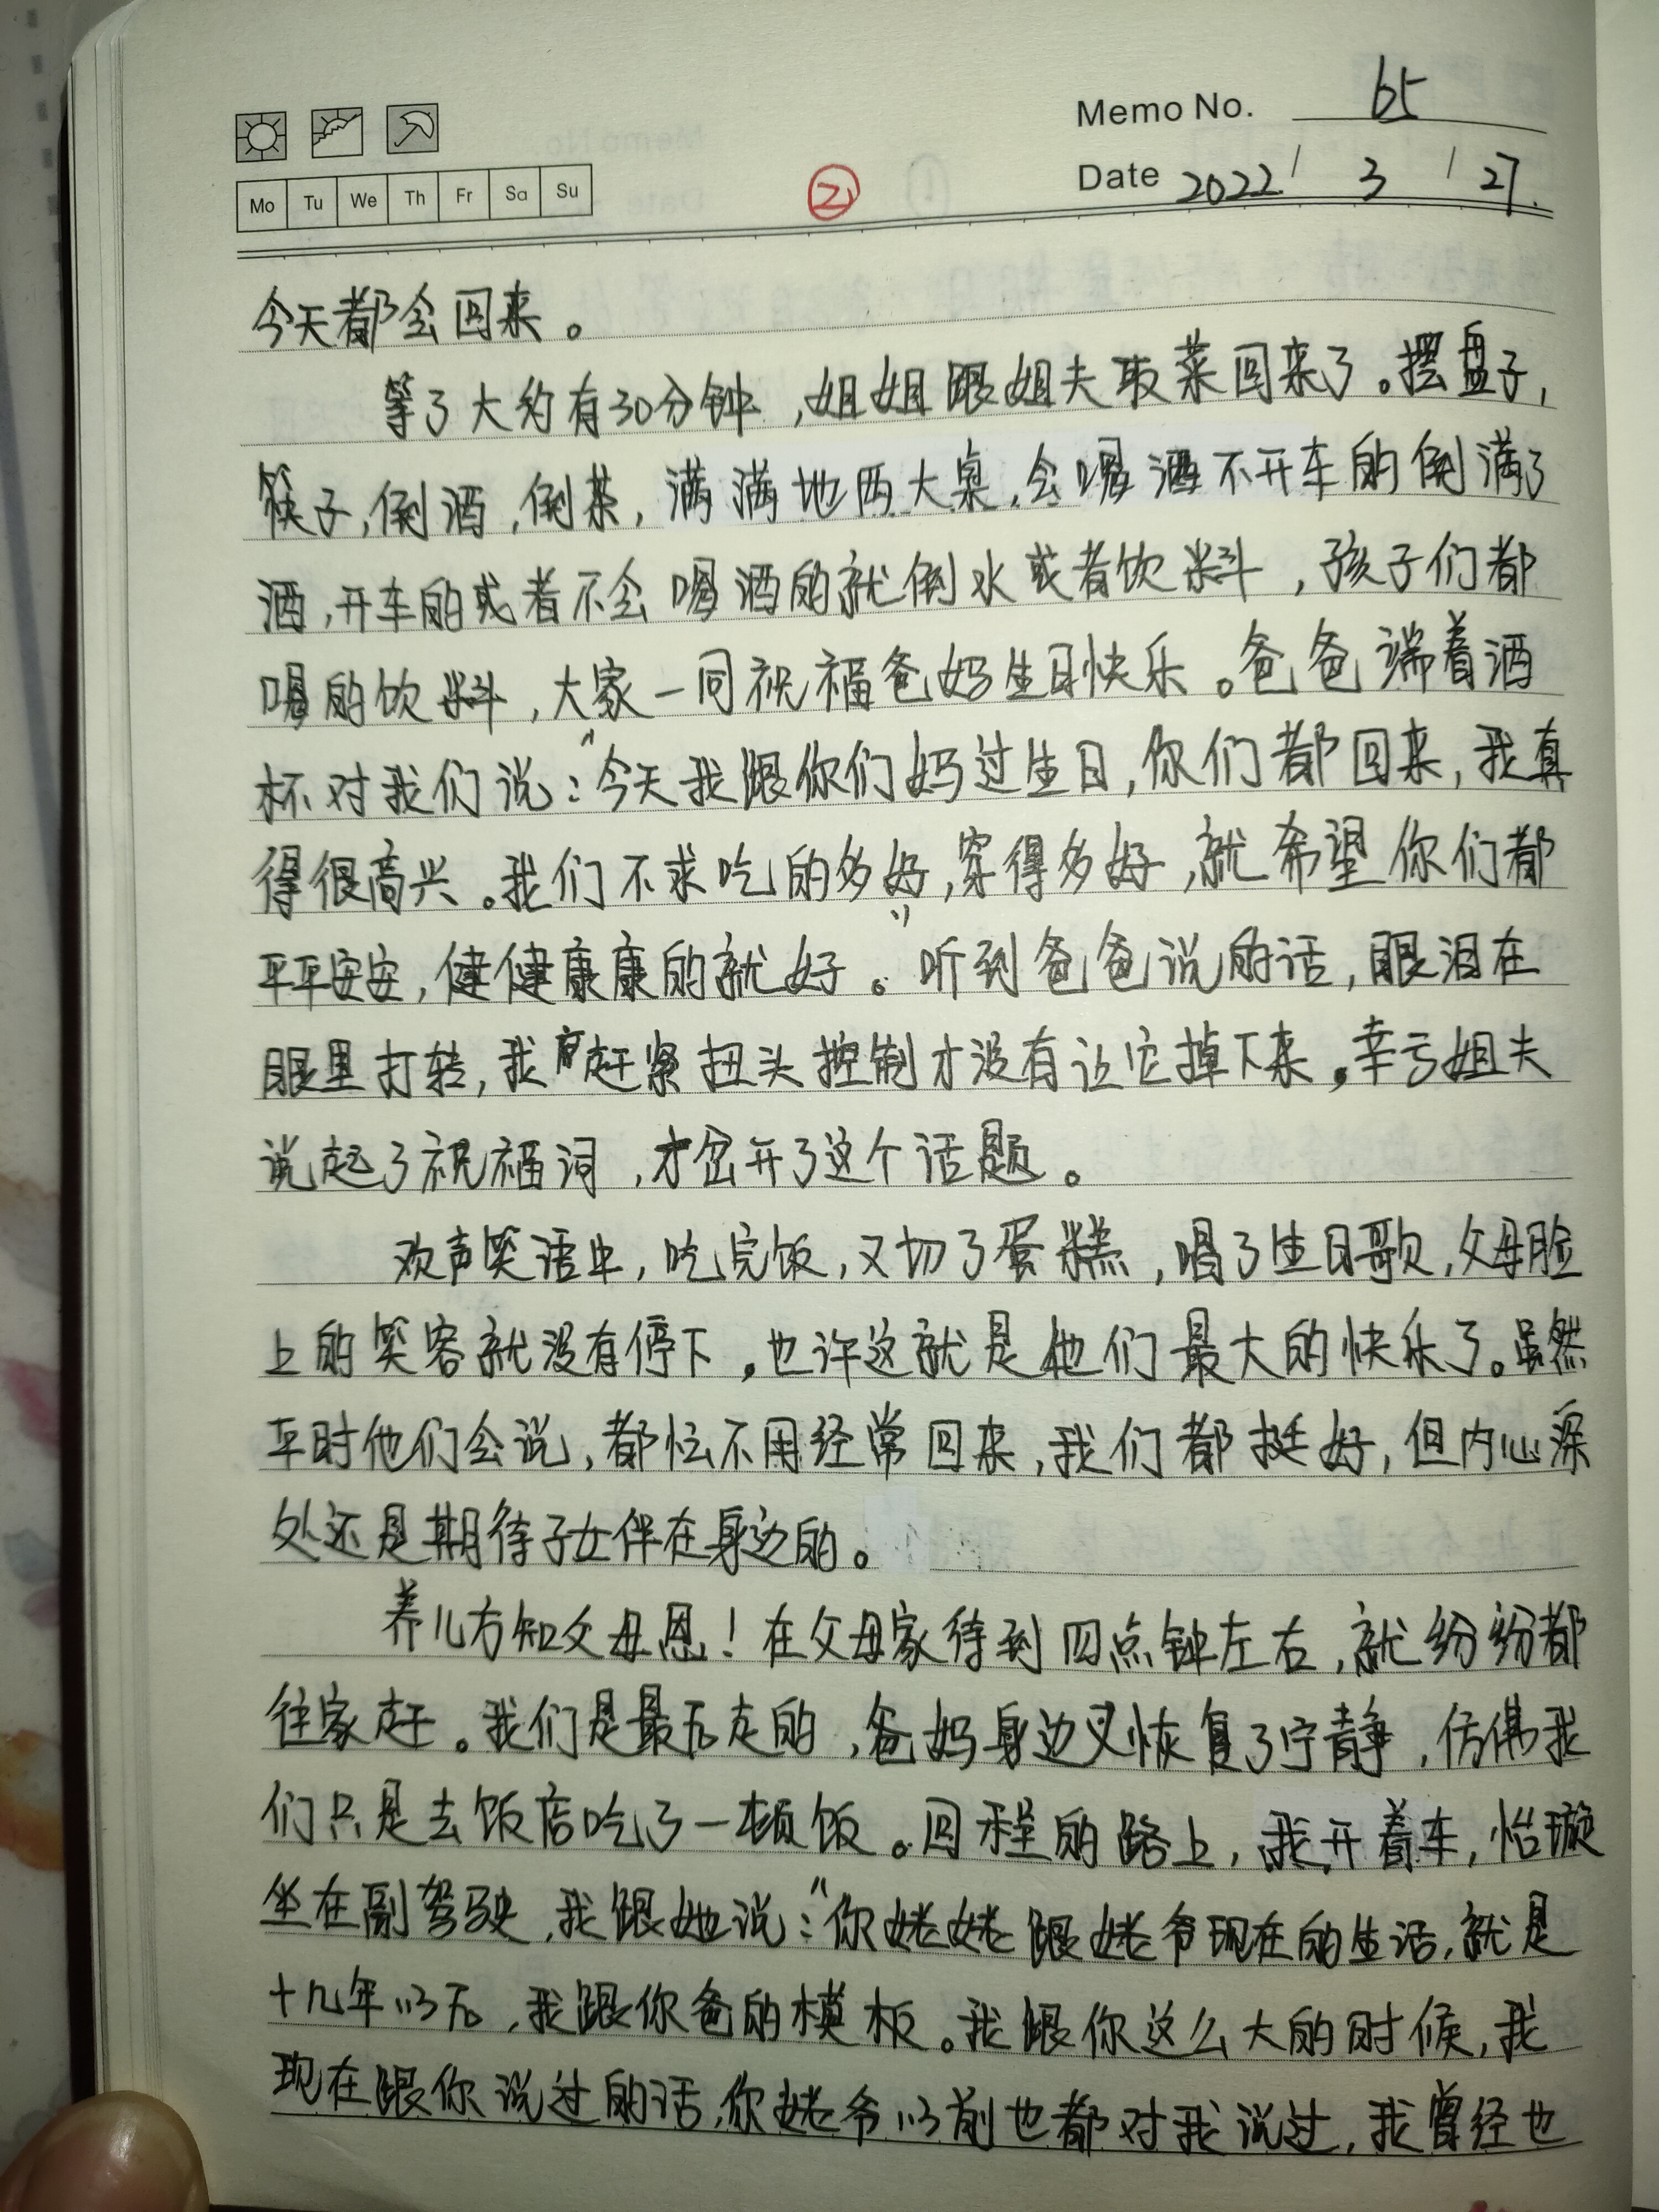 Memo No. 65
Mo Tu We Th Fr Sa Su
②
Date 2022 / 3 / 27.
今天都会回来。
等了大约有30分钟,姐姐跟姐夫取菜回来了。摆盘子,
筷子,倒酒,倒茶,满满地两大桌,会喝酒不开车的倒满了
酒,开车的或者不会喝酒的就倒水或者饮料,孩子们都
喝的饮料,大家一同祝福爸妈生日快乐。爸爸端着酒
杯对我们说:“今天我跟你们妈过生日,你们都回来,我真
得很高兴。我们不求吃的多好,穿得多好,就希望你们都
平平安安,健健康康的就好。”听到爸爸说的话,眼泪在
眼里打转,我赶紧扭头控制才没有让它掉下来,幸亏姐夫
说起了祝福词,才岔开了这个话题。
欢声笑语中,吃完饭,又切了蛋糕,唱了生日歌,父母脸
上的笑容就没有停下,也许这就是他们最大的快乐了。虽然
平时他们会说,都忙不用经常回来,我们都挺好,但内心深
处还是期待子女伴在身边的。
养儿方知父母恩!在父母家待到四点钟左右,就纷纷都
往家赶。我们是最后走的,爸妈身边又恢复了宁静,仿佛我
们只是去饭店吃了一顿饭。回程的路上,我开着车,怡璇
坐在副驾驶,我跟她说:“你姥姥跟姥爷现在的生活,就是
十几年以后,我跟你爸的模板。我跟你这么大的时候,我
现在跟你说过的话,你姥爷以前也都对我说过,我曾经也